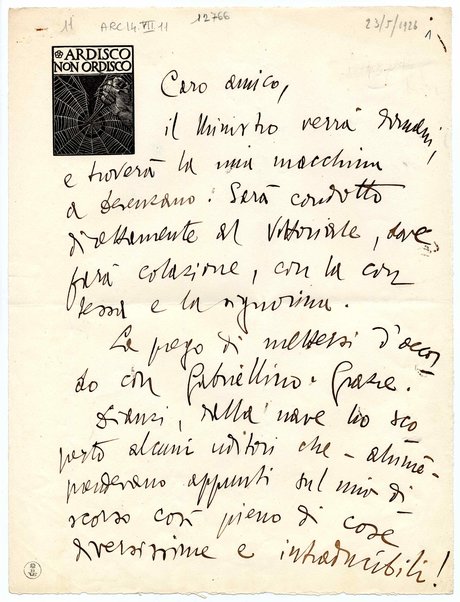 11 ARC 14. VII 11 12766 23/5/1926 1
ARDISCO
NON ORDISCO
Caro amico,
il Ministro verrà domani,
e troverà la mia macchina
a Desenzano. Sarà condotto
direttamente al Vittoriale, dove
farà colazione, con la con
tessa e la signorina.
La prego di mettersi d'accor
do con Gabriellino. Grazie.
Dianzi, dalla nave ho sco
perto alcuni uditori che - ahimè -
prendevano appunti sul mio di
scorso così pieno di cose
diversissime e intraducibili!